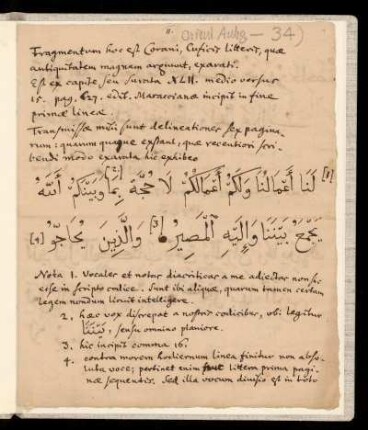 Orient Aukg – 34)
Fragmentum hoc est Corani, Cuficis litteris, quae
antiquitatem magnam arguunt, exarati.
Est ex capite, seu Surata XLII. medio versus
15. pag. 627. edit. Maraccianae incipit in fine
primae lineae.
Transmissae mihi sunt delineationes sex pagina-
rum; quarum quaeque exstant, quae recentiori scri-
bendi modo exarata hic exhibeo
لَنَا أَعْمَالُنَا وَلَكُمْ أَعْمَالُكُمْ لَا حُجَّةَ بَيْنَنَا وَبَيْنَكُمْ اللَّهُ [1]
يَجْمَعُ بَيْنَنَا وَإِلَيْهِ الْمَصِيرُ [3] وَالَّذِينَ يُحَاجُّو [4]
Nota 1. Vocales et notas diacriticas a me adiectas non sic
esse in scripto codice. Sunt ibi aliquae, quarum tamen certam
legem nondum licuit intelligere.
2. haec vox discrepat a nostris codicibus, ubi legitur
بَيْنَنَا, sensu omnino planiore.
3. hic incipit comma 16.
4. contra morem hodiernum linea finitur non abso-
luta voce; pertinet enim littera prima pagi-
nae sequentis. Sed illa vocum divisio est in